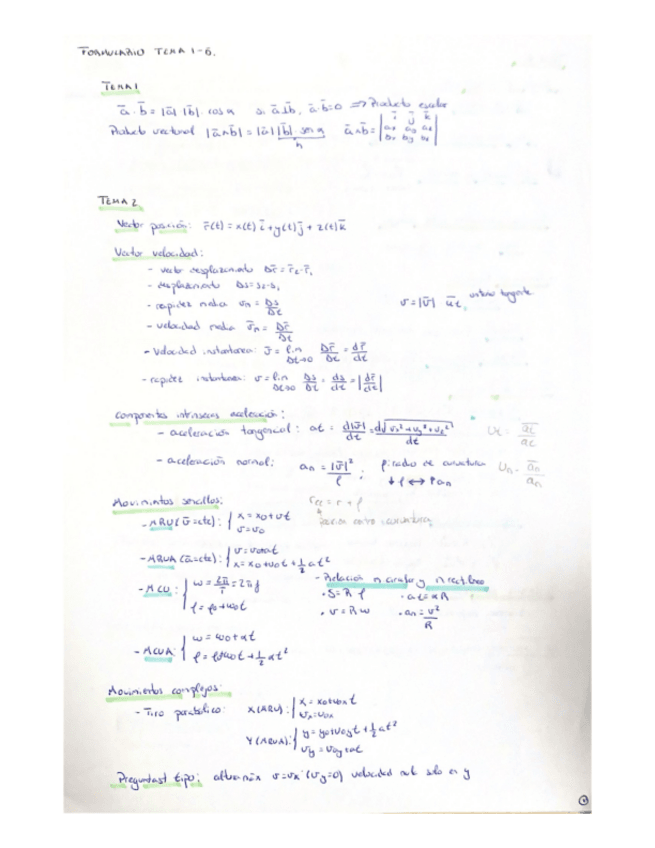 FORMULARIO TEMA 1-6.
TEMA 1
ā · b̄ = |ā| |b̄| · cos α si ā⊥b̄, ā·b̄=0 ⇒ Producto escalar
Producto vectorial |ā∧b̄| = |ā| |b̄| · sen α ā∧b̄ = | i j k
h
TEMA 2
Vector posición: r̄(t) = x(t) ī + y(t) j̄ + z(t) k̄
Vector velocidad:
- vector desplazamiento Δr̄ = r̄₂ - r̄₁
- desplazamiento Δs = s₂ - s₁
- rapidez media vm = Δs/Δt
v = |v̄| ūt vector tangente
- velocidad media v̄m = Δr̄/Δt
- Velocidad instantánea: v̄ = lim Δt→0 Δr̄/Δt = dr̄/dt
- rapidez instantánea: v = lim Δt→0 Δs/Δt = ds/dt = |dr̄/dt|
Componentes intrínsecas aceleración:
- aceleración tangencial: at = d|v̄|/dt = d√(vx²+vy²+vz²)/dt Ut = āt/at
- aceleración normal: an = |v̄|²/ρ ; ρ: radio de curvatura Un = ān/an
↓ρ ↔ ↑an
Movimientos sencillos:
- MRU (v̄=cte): { x = x₀ + vt
v = v₀
- MRUA (ā=cte): { v = v₀ + at
x = x₀ + v₀t + 1/2 at²
- MCU: { ω = 2π/T = 2πf
φ = φ₀ + ω₀t
- Relación m circular y m rectilíneo
· S = R φ · at = αR
· v = R ω · an = v²/R
- MCUA: { ω = ω₀ + αt
φ = φ₀ + ω₀t + 1/2 αt²
Movimientos complejos:
- Tiro parabólico: X (MRU): { x = x₀ + v₀x t
vx = v₀x
Y (MRUA): { y = y₀ + v₀y t + 1/2 at²
vy = v₀y + at
Preguntas tipo: altura máx v = vx (vy=0) velocidad